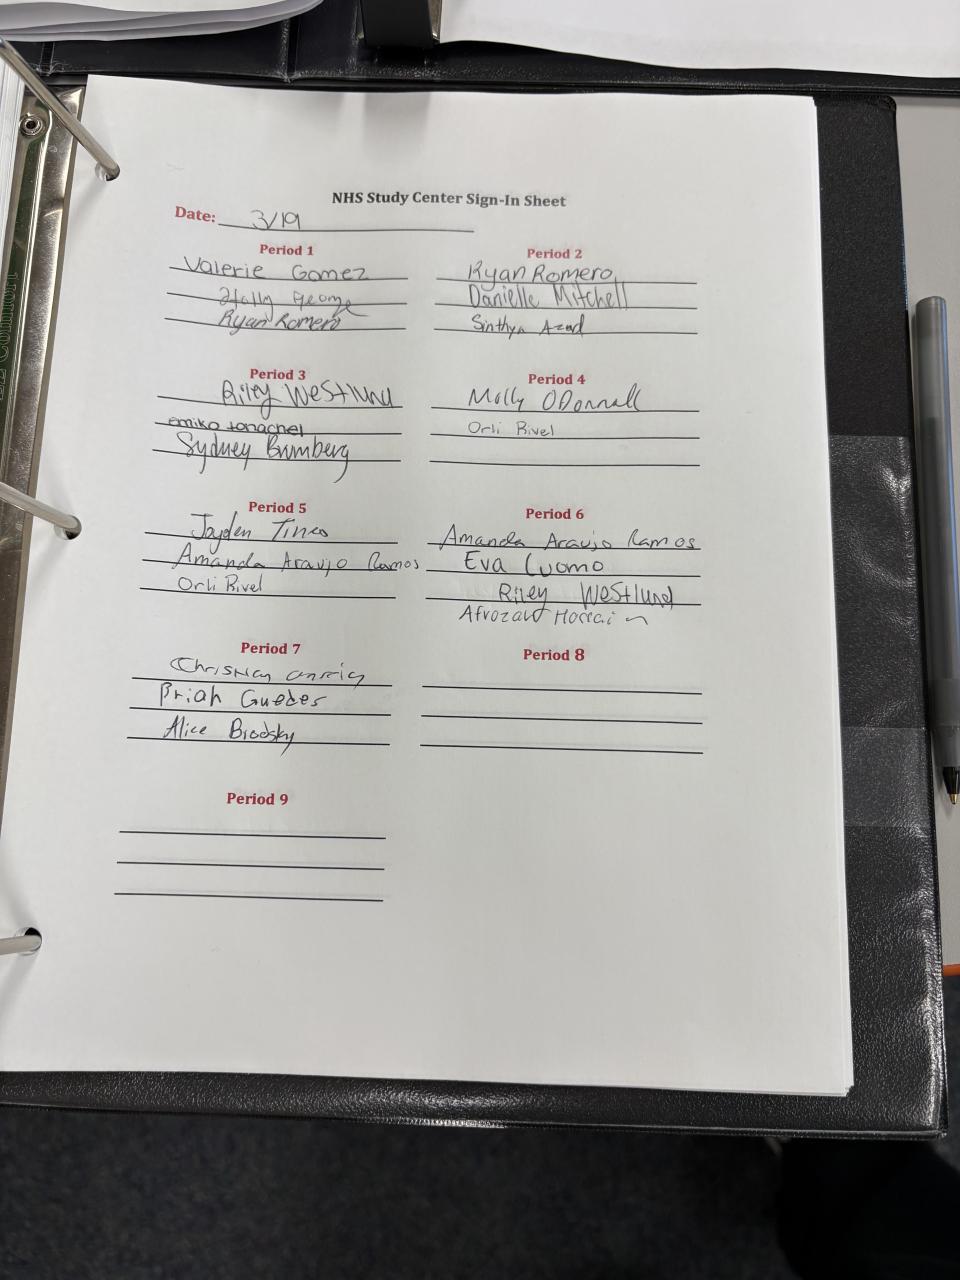 NHS Study Center Sign-In Sheet
Date: 3/19
Period 1
Valerie Gomez
Holly George
Ryan Romero
Period 2
Ryan Romero
Danielle Mitchell
Sinthya Azad
Period 3
Riley Westlund
emiko tanachel
Sydney Brumberg
Period 4
Molly ODonnell
Orli Rivel
Period 5
Jayden Tineo
Amanda Araujo Ramos
Orli Rivel
Period 6
Amanda Araujo Ramos
Eva Cuomo
Riley Westlund
Period 7
Briah Guedes
Alice Brodsky
Period 8
Period 9